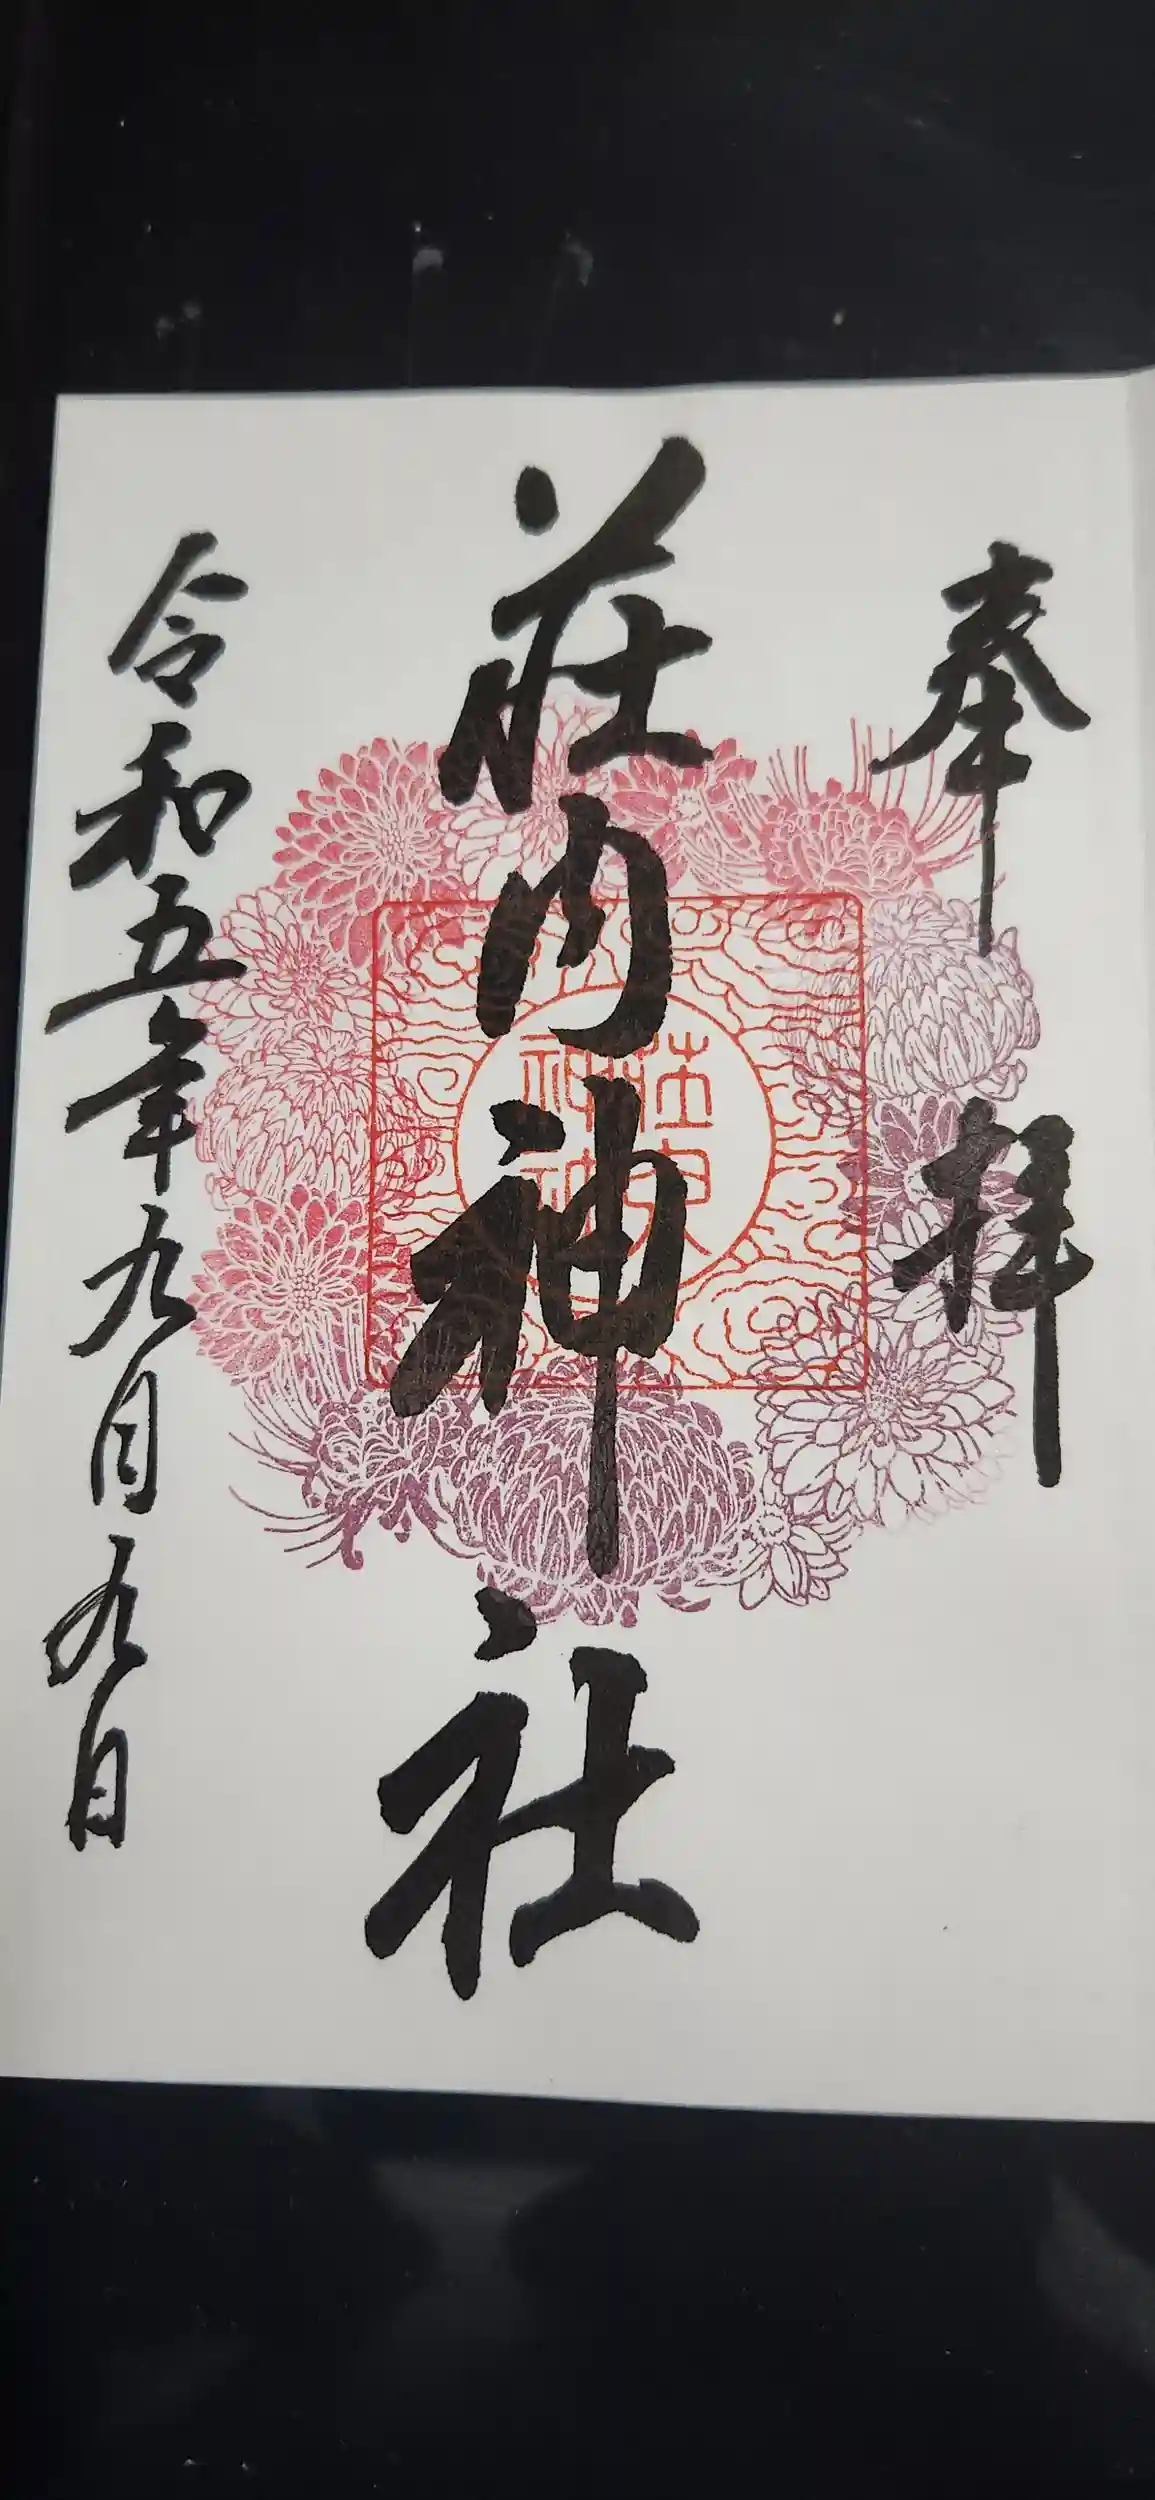 奉拝
荘内神社
荘内
神社
令和五年九月九日